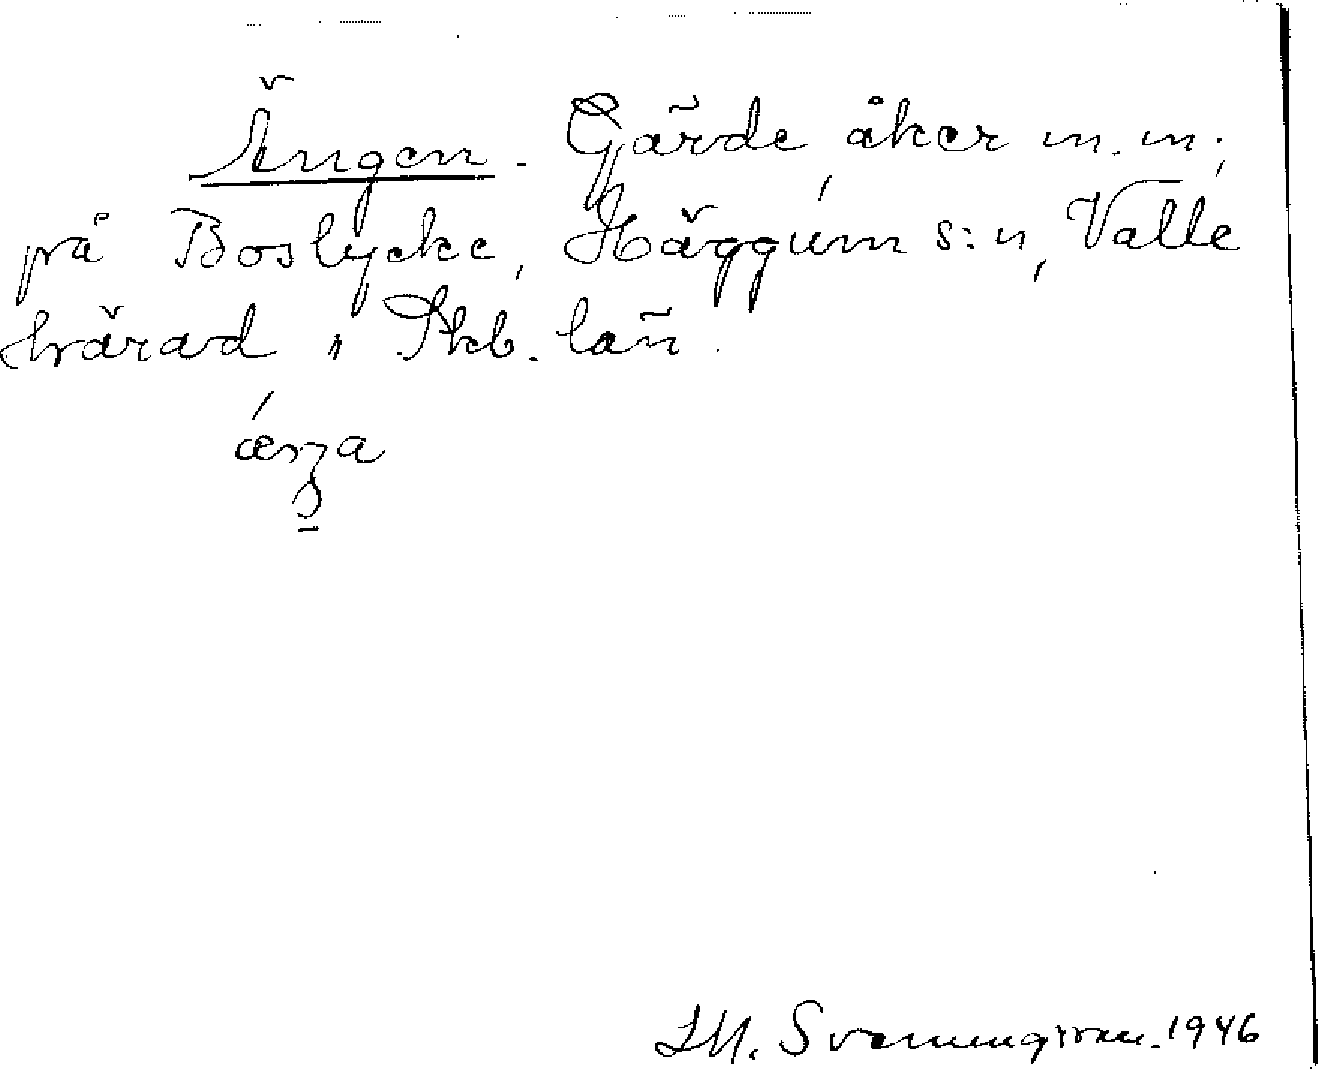 Ängen. Gärde, åker m.m.
på Boslycke, Häggum s:n, Valle
härad, Skb. län.
J.M. Svenningsson. 1946